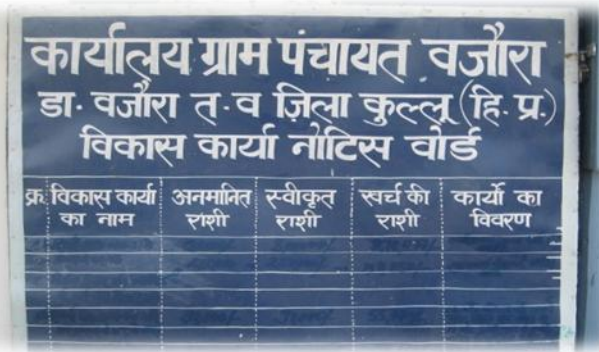 कार्यालय ग्राम पंचायत वजौरा
डा. वजौरा त. व ज़िला कुल्लू (हि. प्र.)
विकास कार्या नोटिस वोर्ड
क्र विकास कार्या का नाम अनमानित राशी स्वीकृत राशी खर्च की राशी कार्यो का विवरण